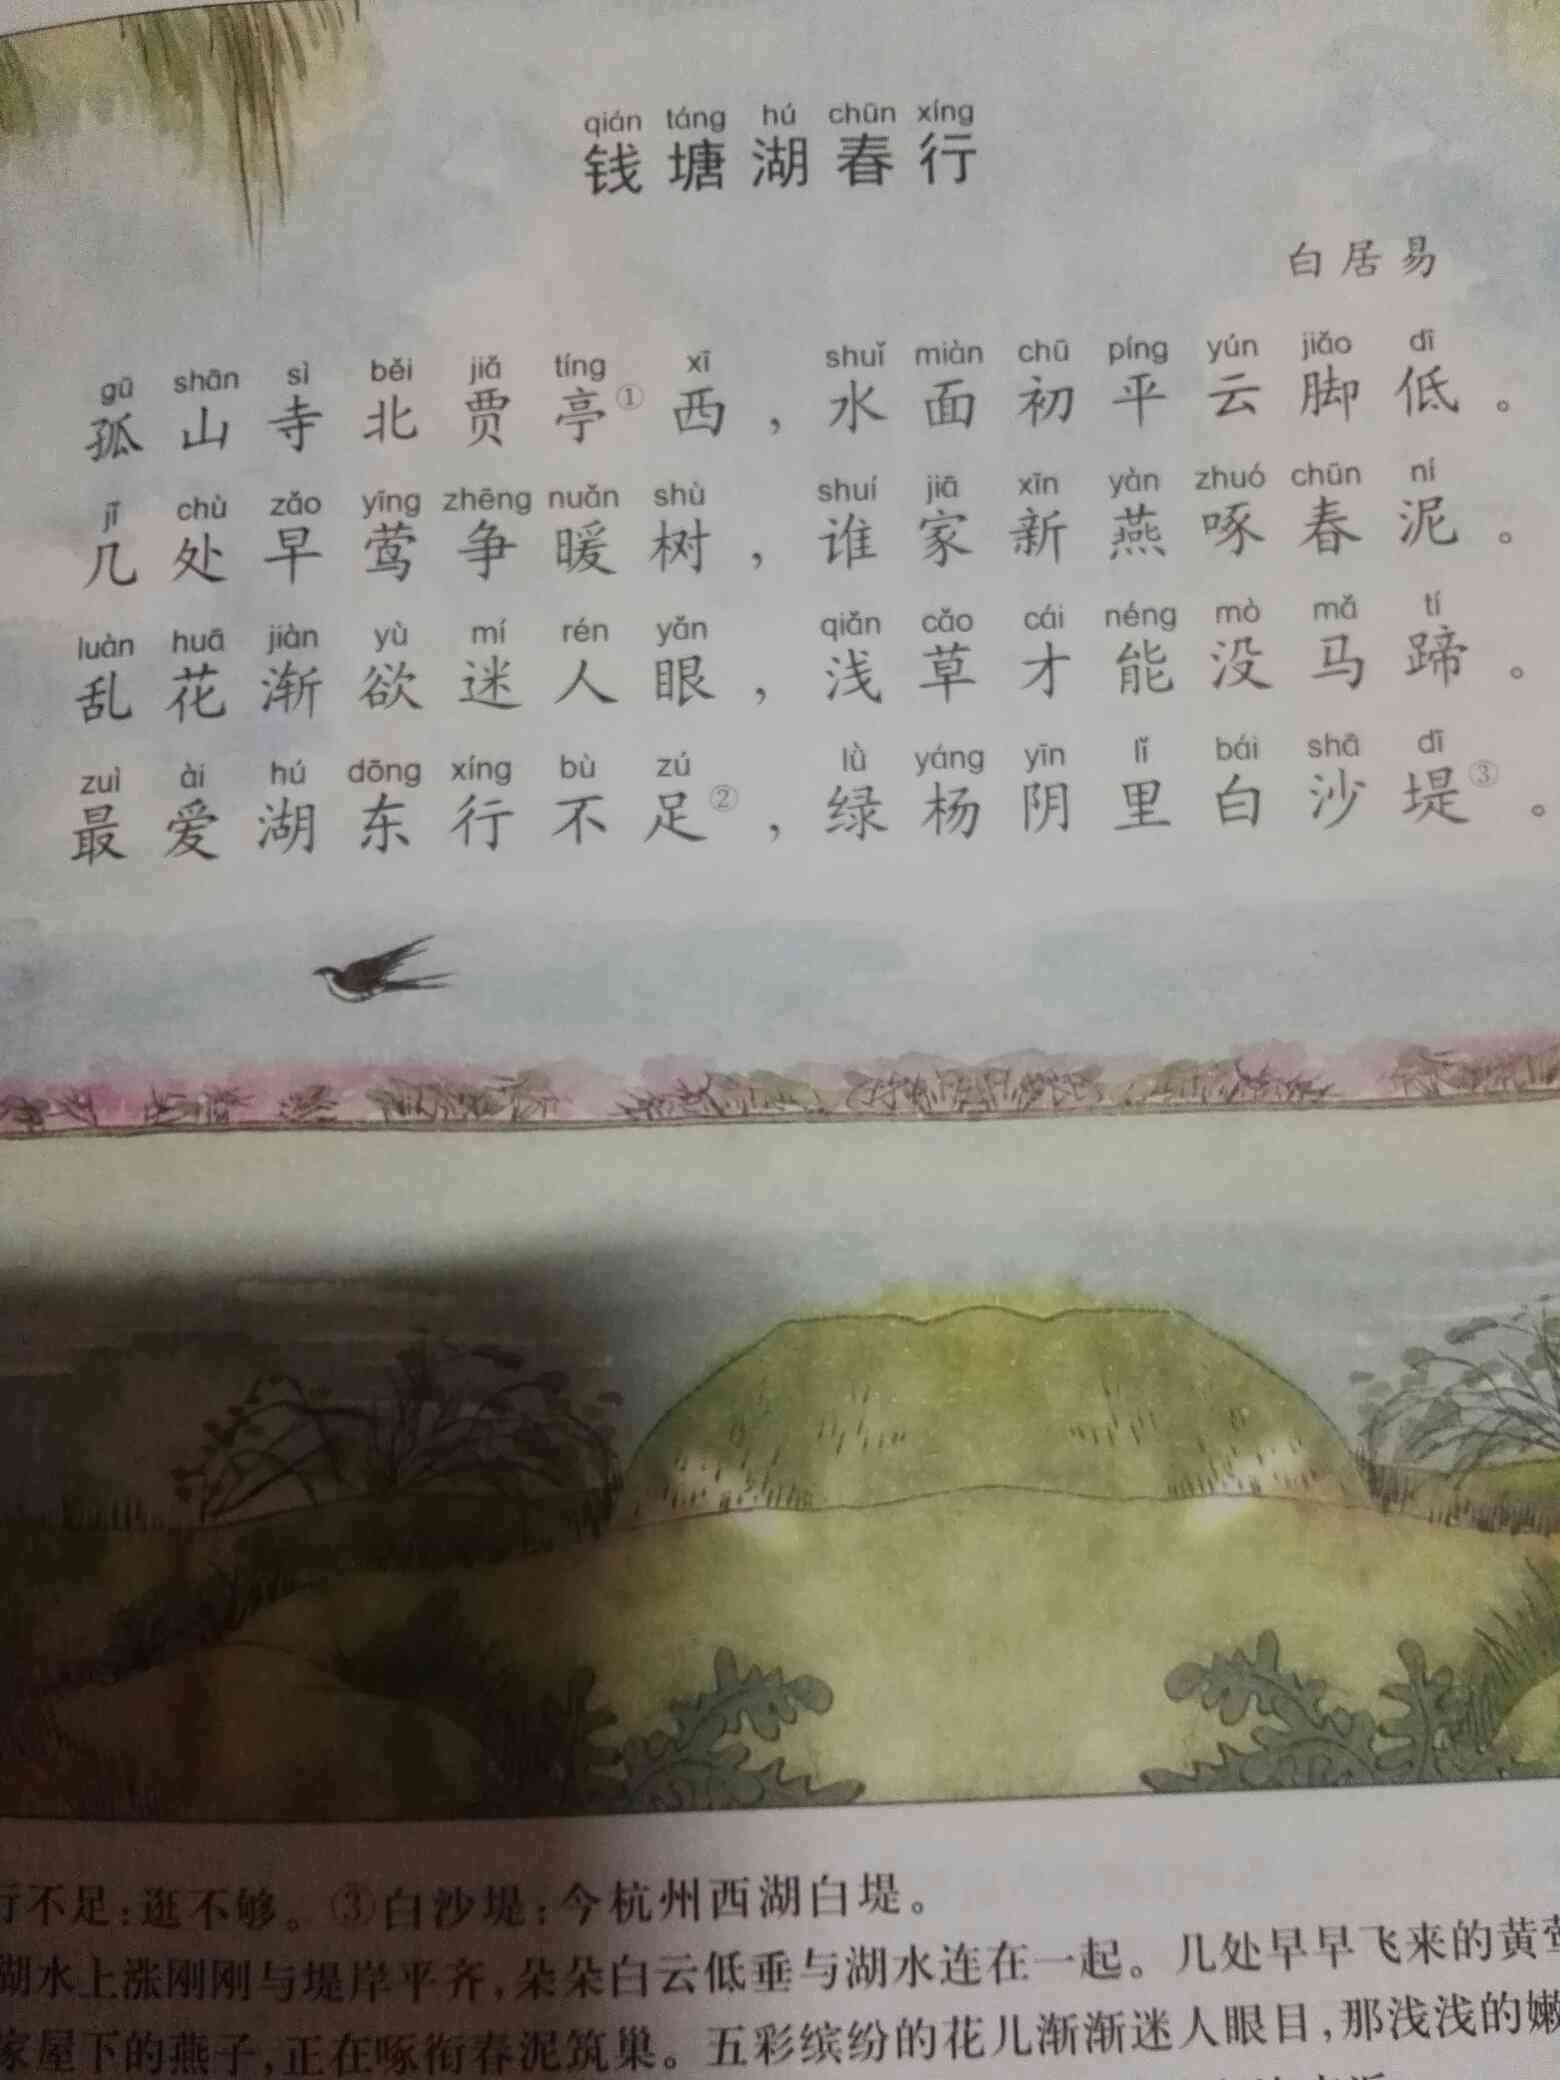 qián táng hú chūn xíng
钱塘湖春行
白居易
gū shān sì běi jiǎ tíng xī shuǐ miàn chū píng yún jiǎo dī
孤山寺北贾亭①西，水面初平云脚低。
jǐ chù zǎo yīng zhēng nuǎn shù shuí jiā xīn yàn zhuó chūn ní
几处早莺争暖树，谁家新燕啄春泥。
luàn huā jiàn yù mí rén yǎn qiǎn cǎo cái néng mò mǎ tí
乱花渐欲迷人眼，浅草才能没马蹄。
zuì ài hú dōng xíng bù zú lǜ yáng yīn lǐ bái shā dī
最爱湖东行不足②，绿杨阴里白沙堤③。
行不足：逛不够。③白沙堤：今杭州西湖白堤。
湖水上涨刚刚与堤岸平齐，朵朵白云低垂与湖水连在一起。几处早早飞来的黄莺
家屋下的燕子，正在啄衔春泥筑巢。五彩缤纷的花儿渐渐迷人眼目，那浅浅的嫩